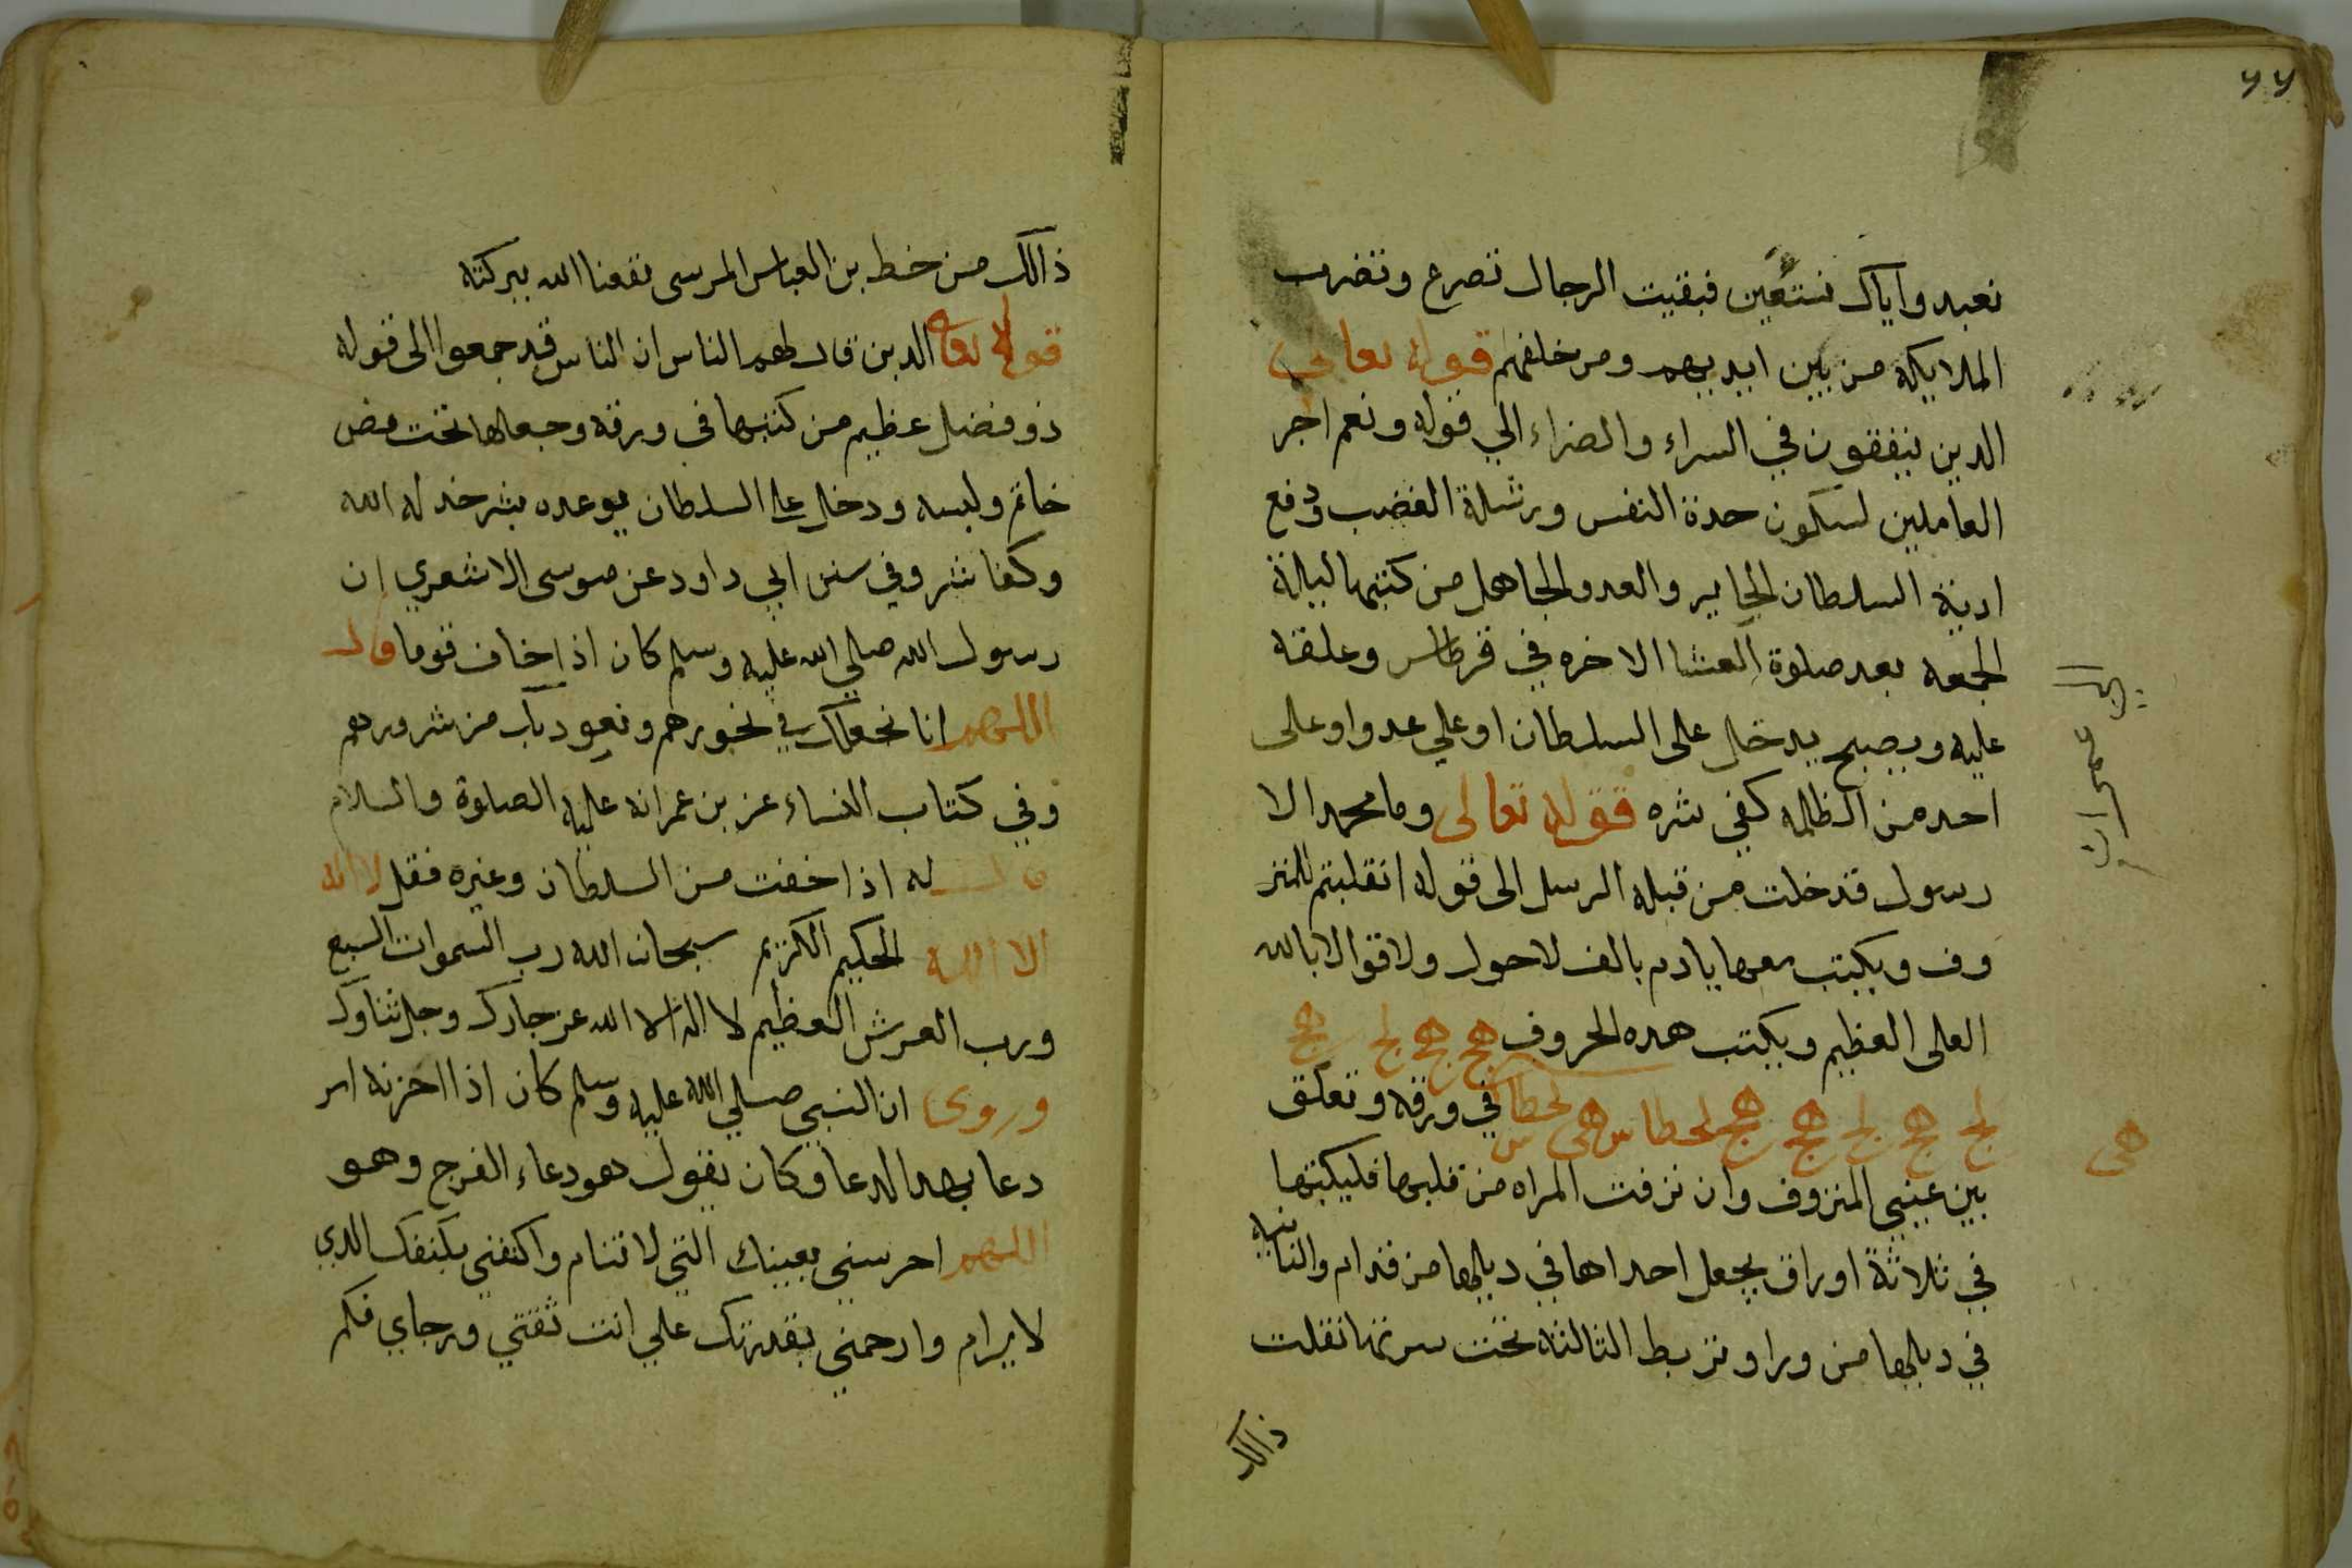 نعبد واياك نستعين فبقيت الرجال تصرع وتضرب
الملايكة من بين ايديهم ومن خلفهم قوله تعالى
الدين ينفقون في السراء والضراء الي قوله ونعم اجر
العاملين لسكون حدة النفس وشدة الغضب ودفع
ادية السلطان الجاير والعدو الجاهل من كتبها ليلة
الجمعه بعد صلوة العشا الاخره في قرطاس وعلقه
عليه ويصبح يدخل على السلطان او علي عدوا وعلى
احد من الظالمه كفي شره قوله تعالى وما محمد الا
رسول قد خلت من قبله الرسل الى قوله انقلبتم للنز
وف ويكتب معها يا دم بالف لاحول ولاقوا الا بالله
العلى العظيم ويكتب هده الحروف هج هج هج لج هج
لج هج لج هج هج لحطاس هى لحطاس في ورقه وتعلق
بين عيني المنزوف وان نزفت المراه من قلبها فليكتبها
في ثلاثة اوراق يجعل احداها في ديلها من قدام والثانيه
في ديلها من ورا وتربط الثالثه تحت سرتها نقلت
ذالك
ال عمران
هى
ذالك من خط بن العباس المرسى نفعنا الله ببركته
قوله تعالى الدين قال لهم الناس ان الناس قد جمعوا الى قوله
ذو فضل عظيم من كتبها في ورقه وجعلها تحت فص
خاتم ولبسه ودخل على السلطان يوعده بشر خد له الله
وكفا شر وفي سنن ابي داود عن موسى الاشعري ان
رسول الله صلي الله عليه وسلم كان اذا خاف قوما قال
اللهم انا نجعلك في نحورهم ونعود بك من شرورهم
وفي كتاب النساء عن بن عمر انه عليه الصلوة والسلام
قال له اذا خفت من السلطان وغيره فقل لا اله
الا الله الحكيم الكريم سبحان الله رب السموات السبع
ورب العرش العظيم لا اله الا الله عز جارك وجل ثناوك
وروى ان النبي صلي الله عليه وسلم كان اذا احزنه امر
دعا بهدا الدعا وكان يقول هو دعاء الفرج وهو
اللهم احرسني بعينك التي لا تنام واكنفني بكنفك الدي
لا يرام وارحمني بقدرتك علي انت ثقتي ورجاي فكم